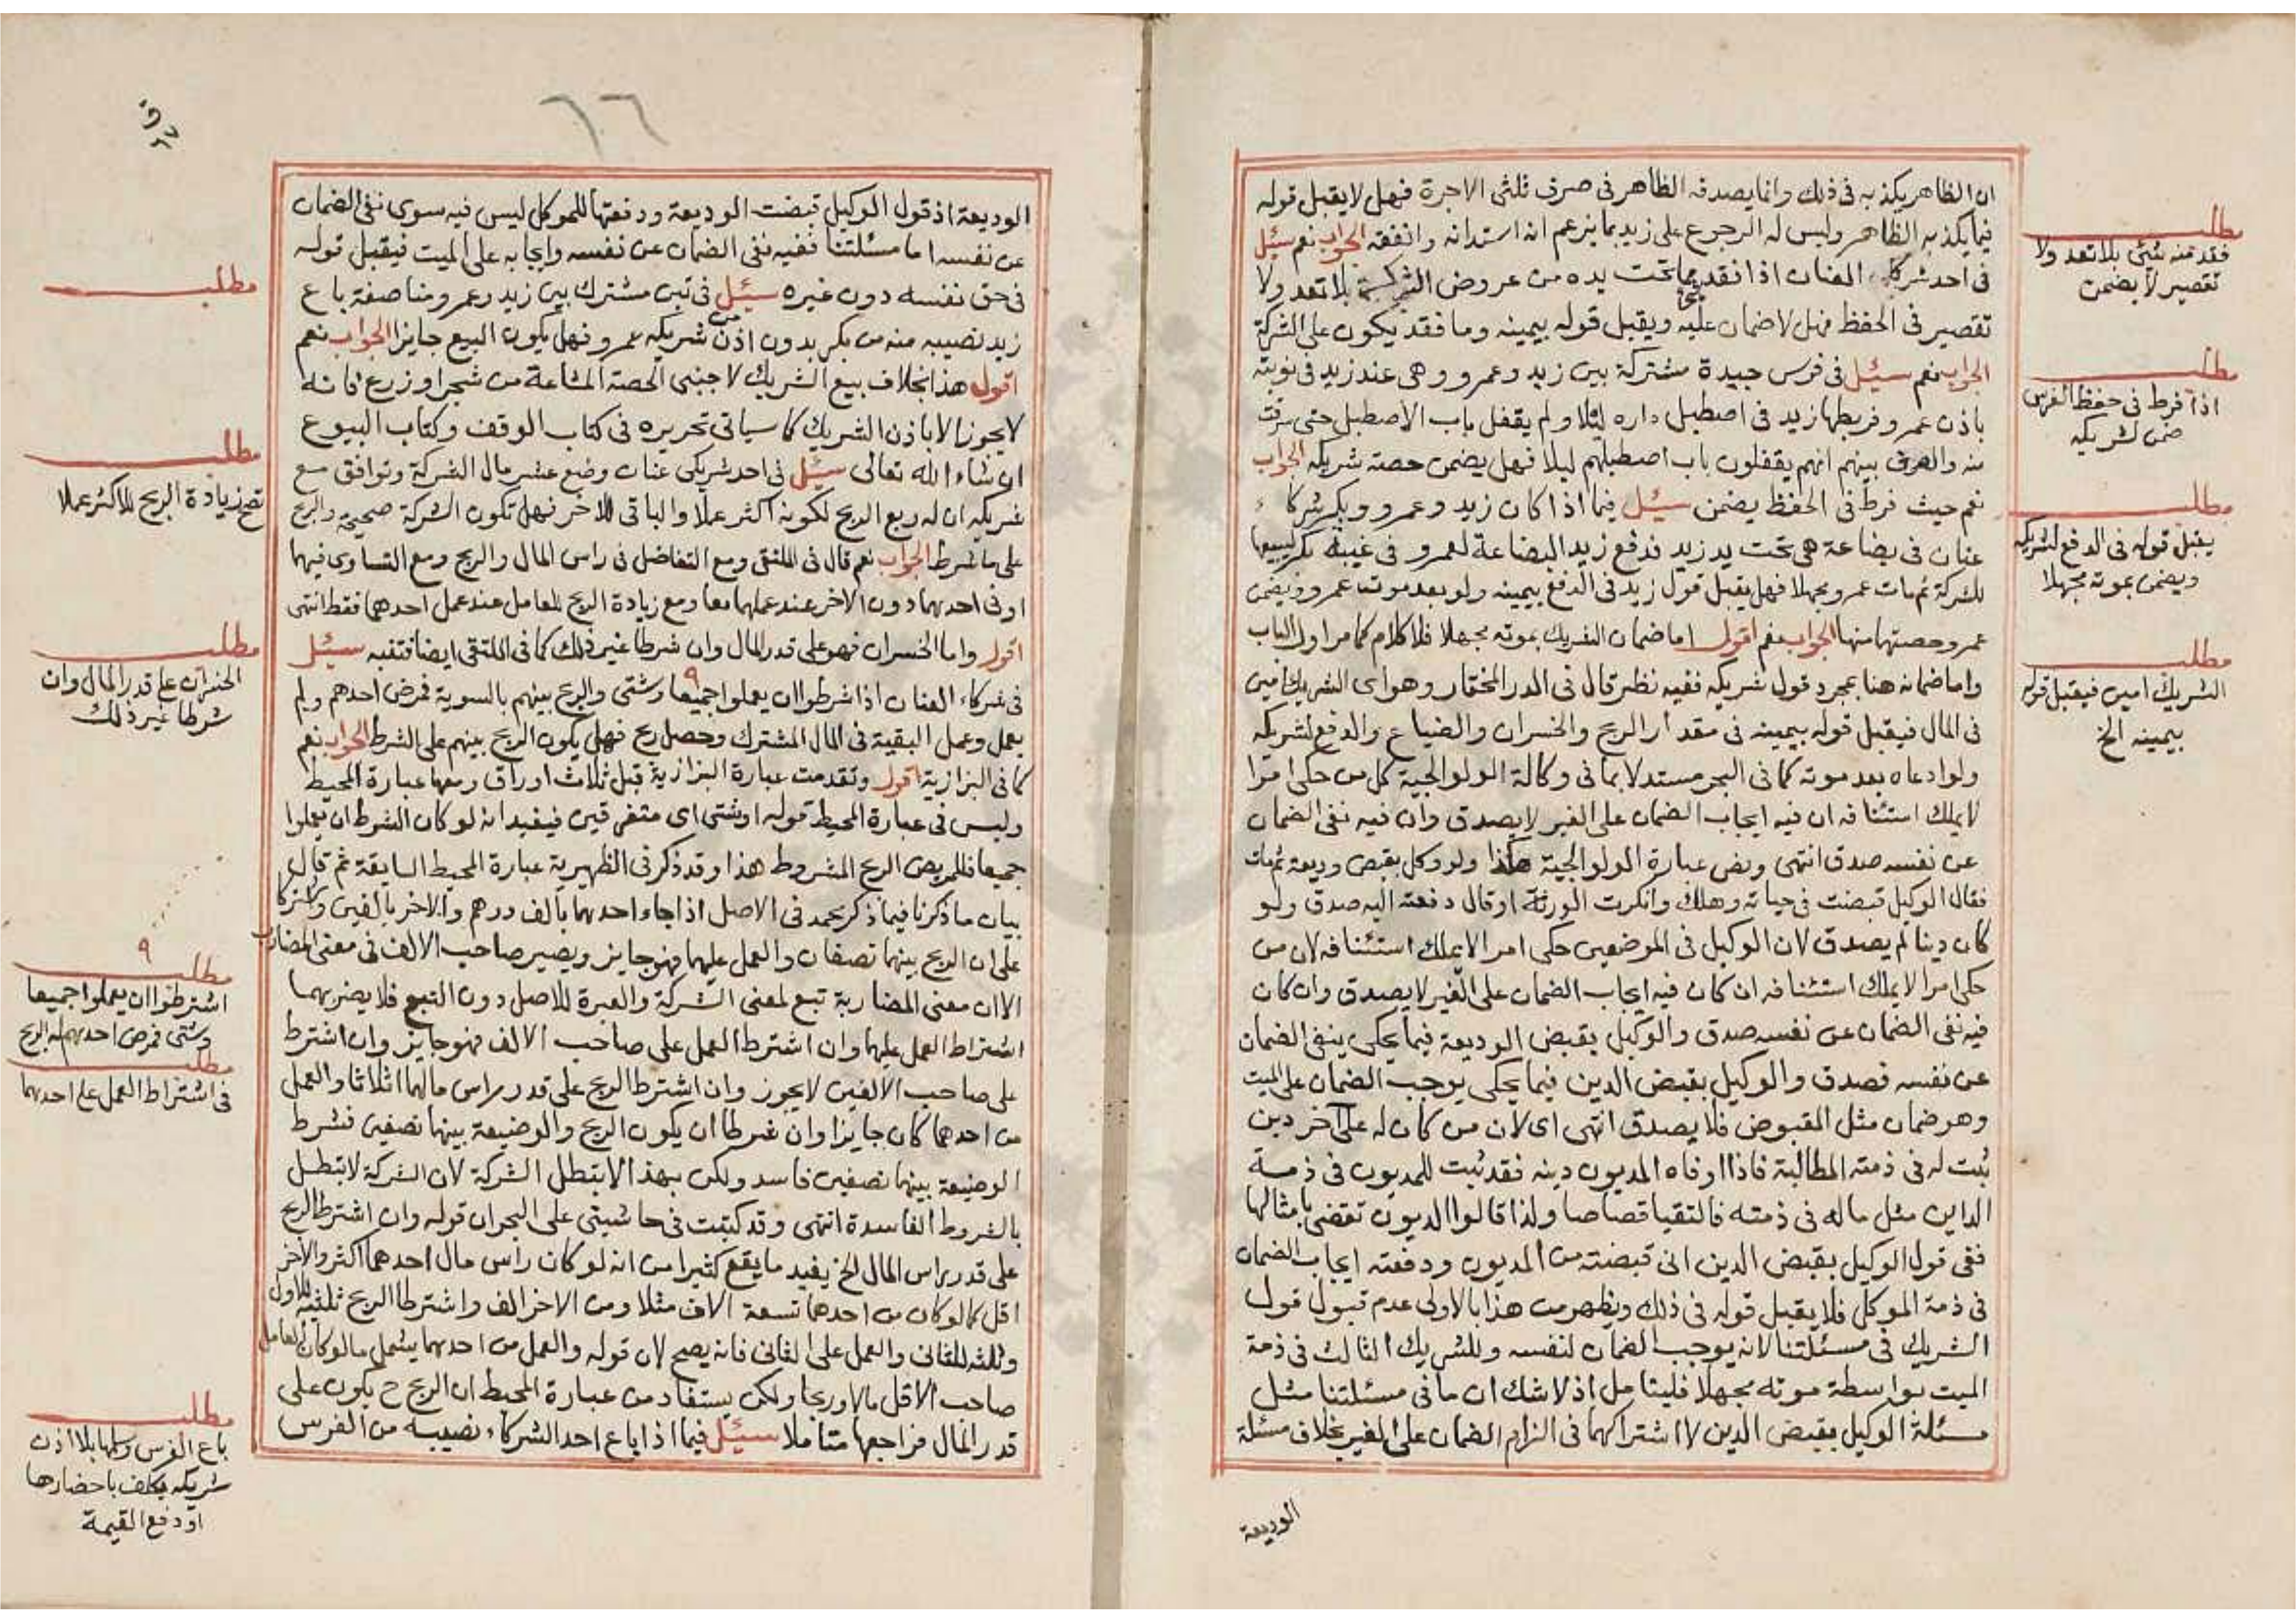 ان الظاهر يكذبه فى ذلك وانما يصدقه الظاهر فى صرف ثلثى الاجرة فهل لا يقبل قوله
فيما يكذبه الظاهر وليس له الرجوع على زيد بما يزعم انه استدانه وانفقه الجواب نعم سئل
فى احد شركاء العنان اذا فقد مما تحت يده من عروض الشركة شئ بلا تعد ولا
تقصير فى الحفظ فهل لا ضمان عليه ويقبل قوله بيمينه وما فقد يكون على الشركة
الجواب نعم سئل فى فرس جيدة مشتركة بين زيد وعمرو وهى عند زيد فى نوبته
باذن عمرو فربطها زيد فى اصطبل داره ليلا ولم يقفل باب الاصطبل حتى سرقت
منه والعرف بينهم انهم يقفلون باب اصطبلهم ليلا فهل يضمن حصته شريكه الجواب
نعم حيث فرط فى الحفظ يضمن سئل فيما اذا كان زيد وعمرو وبكر شركاء
عنان فى بضاعة هى تحت يد زيد فدفع زيد البضاعة لعمرو فى غيبة بكر ليبيعها
للشركة ثم مات عمرو مجهلا فهل يقبل قول زيد فى الدفع بيمينه ولو بعد موت عمرو ويضمن
عمرو حصتهما منها الجواب نعم اقول اما ضمان الشريك بموته مجهلا فلا كلام كما مر اول الباب
واما ضمانه هنا بمجرد قول شريكه ففيه نظر قال فى الدر المختار وهو اى الشريك امين
فى المال فيقبل قوله بيمينه فى مقدار الربح والخسران والضياع والدفع لشريكه
ولو ادعاه بعد موته كما فى البحر مستدلا بما فى وكالة الولوالجية كل من حكى امرا
لا يملك استئنافه ان فيه ايجاب الضمان على الغير لا يصدق وان فيه نفى الضمان
عن نفسه صدق انتهى ونص عبارة الولوالجية هكذا ولو وكل بقبض وديعة ثم مات
فقال الوكيل قبضت فى حياته وهلك وانكرت الورثة او قال دفعته اليه صدق ولو
كان دينا لم يصدق لان الوكيل فى الموضعين حكى امرا لا يملك استئنافه لان من
حكى امرا لا يملك استئنافه ان كان فيه ايجاب الضمان على الغير لا يصدق وان كان
فيه نفى الضمان عن نفسه صدق والوكيل بقبض الوديعة فيما يحكى ينفى الضمان
عن نفسه فصدق والوكيل بقبض الدين فيما يحكى يوجب الضمان على الميت
وهو ضمان مثل المقبوض فلا يصدق انتهى اى لان من كان له على آخر دين
ثبت له فى ذمته المطالبة فاذا اوفاه المديون دينه فقد ثبت للمديون فى ذمة
الداين مثل ماله فى ذمته فالتقيا قصاصا ولذا قالوا الديون تقضى بامثالها
ففى قول الوكيل بقبض الدين انى قبضته من المديون ودفعته ايجاب الضمان
فى ذمة الموكل فلا يقبل قوله فى ذلك ويظهر من هذا بالاولى عدم قبول قول
الشريك فى مسئلتنا لانه يوجب الضمان لنفسه وللشريك الثالث فى ذمة
الميت بواسطة موته مجهلا فليتامل اذ لا شك ان ما فى مسئلتنا مثل
مسئلة الوكيل بقبض الدين لاشتراكهما فى الزام الضمان على الغير بخلاف مسئلة
الوديعة
مطلب
فقد منه شئ بلا تعد ولا
تقصير لا يضمن
مطلب
اذا فرط فى حفظ الفرس
ضمن لشريكه
مطلب
يقبل قوله فى الدفع لشريكه
ويضمن بموته مجهلا
مطلب
الشريك امين فيقبل قوله
بيمينه الخ
٦٦
الوديعة اذ قول الوكيل قبضت الوديعة ودفعتها للموكل ليس فيه سوى نفى الضمان
عن نفسه اما مسئلتنا ففيه نفى الضمان عن نفسه وايجابه على الميت فيقبل قوله
فى حق نفسه دون غيره سئل فى تبن مشترك بين زيد وعمرو مناصفة باع
زيد نصيبه منه من بكر بدون اذن من شريكه عمرو فهل يكون البيع جايزا الجواب نعم
اقول هذا بخلاف بيع الشريك لاجنبى الحصة المشاعة من شجر او زرع فانه
لا يجوز الا باذن الشريك كما سياتى تحريره فى كتاب الوقف وكتاب البيوع
ان شاء الله تعالى سئل فى احد شريكى عنان وضع عشر مال الشركة وتوافق مع
شريكه ان له ربع الربح لكونه اكثر عملا والباقى للاخر فهل تكون الشركة صحيحة والربح
على ما شرط الجواب نعم قال فى الملتقى ومع التفاضل فى راس المال والربح ومع التساوى فيهما
او فى احدهما دون الاخر عند عملهما معا ومع زيادة الربح للعامل عند عمل احدهما فقط انتهى
اقول واما الخسران فهو على قدر المال وان شرطا غير ذلك كما فى الملتقى ايضا فتنبه سئل
فى شركاء العنان اذا شرطوا ان يعملوا جميعا وشتى والربح بينهم بالسوية فمرض احدهم ولم
يعمل وعمل البقية فى المال المشترك وحصل ربح فهل يكون الربح بينهم على الشرط الجواب نعم
كما فى البزازية اقول وتقدمت عبارة البزازية قبل ثلاث اوراق ومعها عبارة المحيط
وليس فى عبارة المحيط قوله او شتى اى متفرقين فيفيد انه لو كان الشرط ان يعملوا
جميعا فللمريض الربح المشروط هذا وقد ذكر فى الظهيرية عبارة المحيط السابقة ثم قال
بيان ما ذكرنا فيما ذكر محمد فى الاصل اذا جاء احدهما بالف درهم والاخر بالفين واشتركا
على ان الربح بينهما نصفان والعمل عليهما فهو جايز ويصير صاحب الالف فى معنى المضارب
الا ان معنى المضاربة تبع لمعنى الشركة والعبرة للاصل دون التبع فلا يضرهما
اشتراط العمل عليهما وان اشترط العمل على صاحب الالف فهو جايز وان اشترط
على صاحب الالفين لا يجوز وان اشترط الربح على قدر راس مالهما اثلاثا والعمل
من احدهما كان جايزا وان شرطا ان يكون الربح والوضيعة بينهما نصفين فشرط
الوضيعة بينهما نصفين فاسد ولكن بهذا لا تبطل الشركة لان الشركة لا تبطل
بالشروط الفاسدة انتهى وقد كتبت فى حاشيتى على البحر ان قوله وان اشترط الربح
على قدر راس المال الخ يفيد ما يقع كثيرا من انه لو كان راس مال احدهما اكثر والاخر
اقل كما لو كان من احدهما تسعة الاف مثلا ومن الاخر الف واشترطا الربح ثلثيه للاول
وثلثه للثانى والعمل على الثانى فانه يصح لان قوله والعمل من احدهما يشمل ما لو كان العامل
صاحب الاقل مالا وربحا ولكن يستفاد من عبارة المحيط ان الربح ح يكون على
قدر المال فراجعها متاملا سئل فيما اذا باع احد الشركاء نصيبه من الفرس
مطلب
مطلب
تصح زيادة الربح للاكثر عملا
مطلب
الخسران على قدر المال وان
شرطا غير ذلك
٩
مطلب
اشترطوا ان يعملوا جميعا
وشتى فمرض احدهم له الربح
مطلب
فى اشتراط العمل على احدهما
مطلب
باع الفرس وسلمها بلا اذن
شريكه يكلف باحضارها
او دفع القيمة